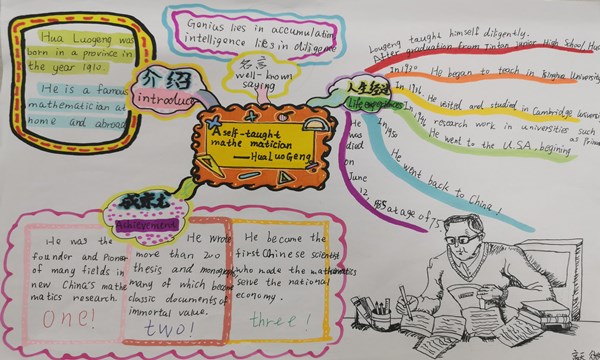 Hua Luogeng was
born in a province in
the year 1910.
He is a famous
mathematician at
home and abroad
介绍
introduce
Genius lies in accumulation
intelligence lies in diligence
名言
well-known
saying
A self-taught
mathe matician
——Hua Luo Geng
人生经
Life experiences
Luogeng taught himself diligently.
After graduation from Jintan Junior High School, Hua
In 193
He began to teach in Tsinghua University
In 1936, He visited and studied in Cambridge University
In 1946 research work in universities such as
He went to the U.S.A, begining
In 1950
He went back to China!
He was died on June 12, 1985 at age of 75
成就
Achievement
He was the
founder and Pioneer
of many fields in
new China's mathe
matics research.
One!
He wrote
more than 200
thesis and monographs
many of which become
classic documents of
immortal value.
two!
He become the
first Chinese scientist
who made the mathematics
serve the national
economy.
three!